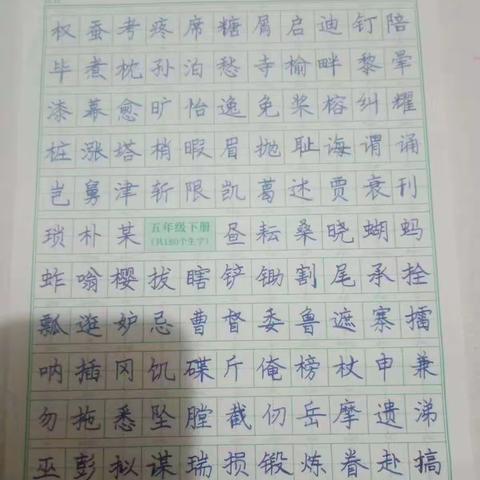 权蚕考疼席糖屑启迪钉陪
毕煮枕孙泊愁寺榆畔黎晕
漆幕愈旷怡逸免桨榕纠耀
桩涨塔梢暇眉抛耻诲谓诵
岂舅津斩限凯葛述贾衰刊
琐朴某 五年级下册 昼耘桑晓蝴蚂
(共180个生字)
蚱嗡樱拔瞎铲锄割尾承拴
瓢逛妒忌曹督委鲁遮寨擂
呐插冈饥碟斤俺榜杖申兼
勿拖悉坠膛截仞岳摩遗涕
巫彭拟谋瑞损锻炼眷赴搞